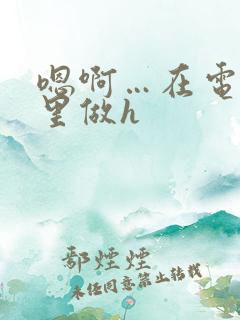 嗯啊…在電
里做h
鄢煙煙
未经同意禁止转载